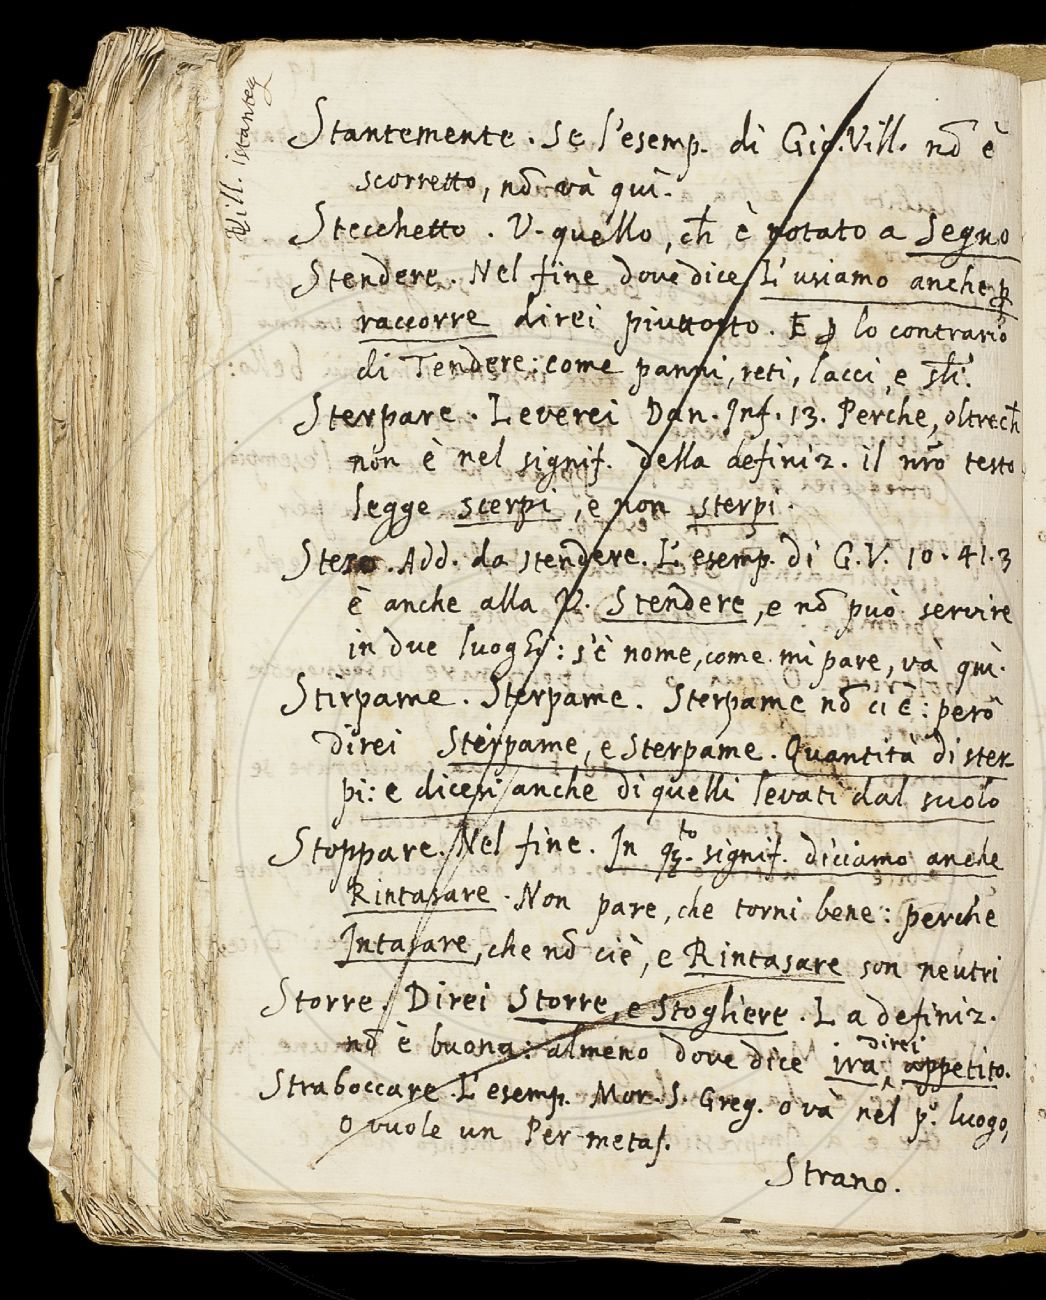 Vill. istanteq
Stantemente. Se l'esemp. di Gio. Vill. nō è
scorretto, nō và quì.
Stecchetto. V. quello, ch̄ è notato a Segno
Stendere. Nel fine dove dice L'usiamo anche ꝑ
raccorre direi piuttosto. E ꝑ lo contrario
di Tendere: come panni, reti, lacci, e sīli.
Sterpare. Leverei Dan. Inf. 13. Perche, oltrech̄
non è nel signif. della definiz. il nr̄o testo
legge scerpi, e non sterpi.
Steso. Add. da stendere. L'esemp. di G.V. 10.41.3
è anche alla V. Stendere, e nō può servire
in due luoghi: s'è nome, come mi pare, và quì.
Stirpame. Sterpame. Sterpame nō ci è: però
direi Sterpame, e sterpame. Quantità di ster
pi: e dicesi anche di quelli levati dal suolo
Stoppare. Nel fine. In qsto. signif. diciamo anche
Rintasare. Non pare, che torni bene: perche
Intasare, che nō ciè, e Rintasare son neutri
Storre. Direi Storre, e Stogliere. La definiz.
nō è buona: almeno dove dice ira, direi appetito.
Straboccare. L'esemp. Mor. S. Greg. o và nel pº. luogo,
o vuole un Per metaf.
Strano.